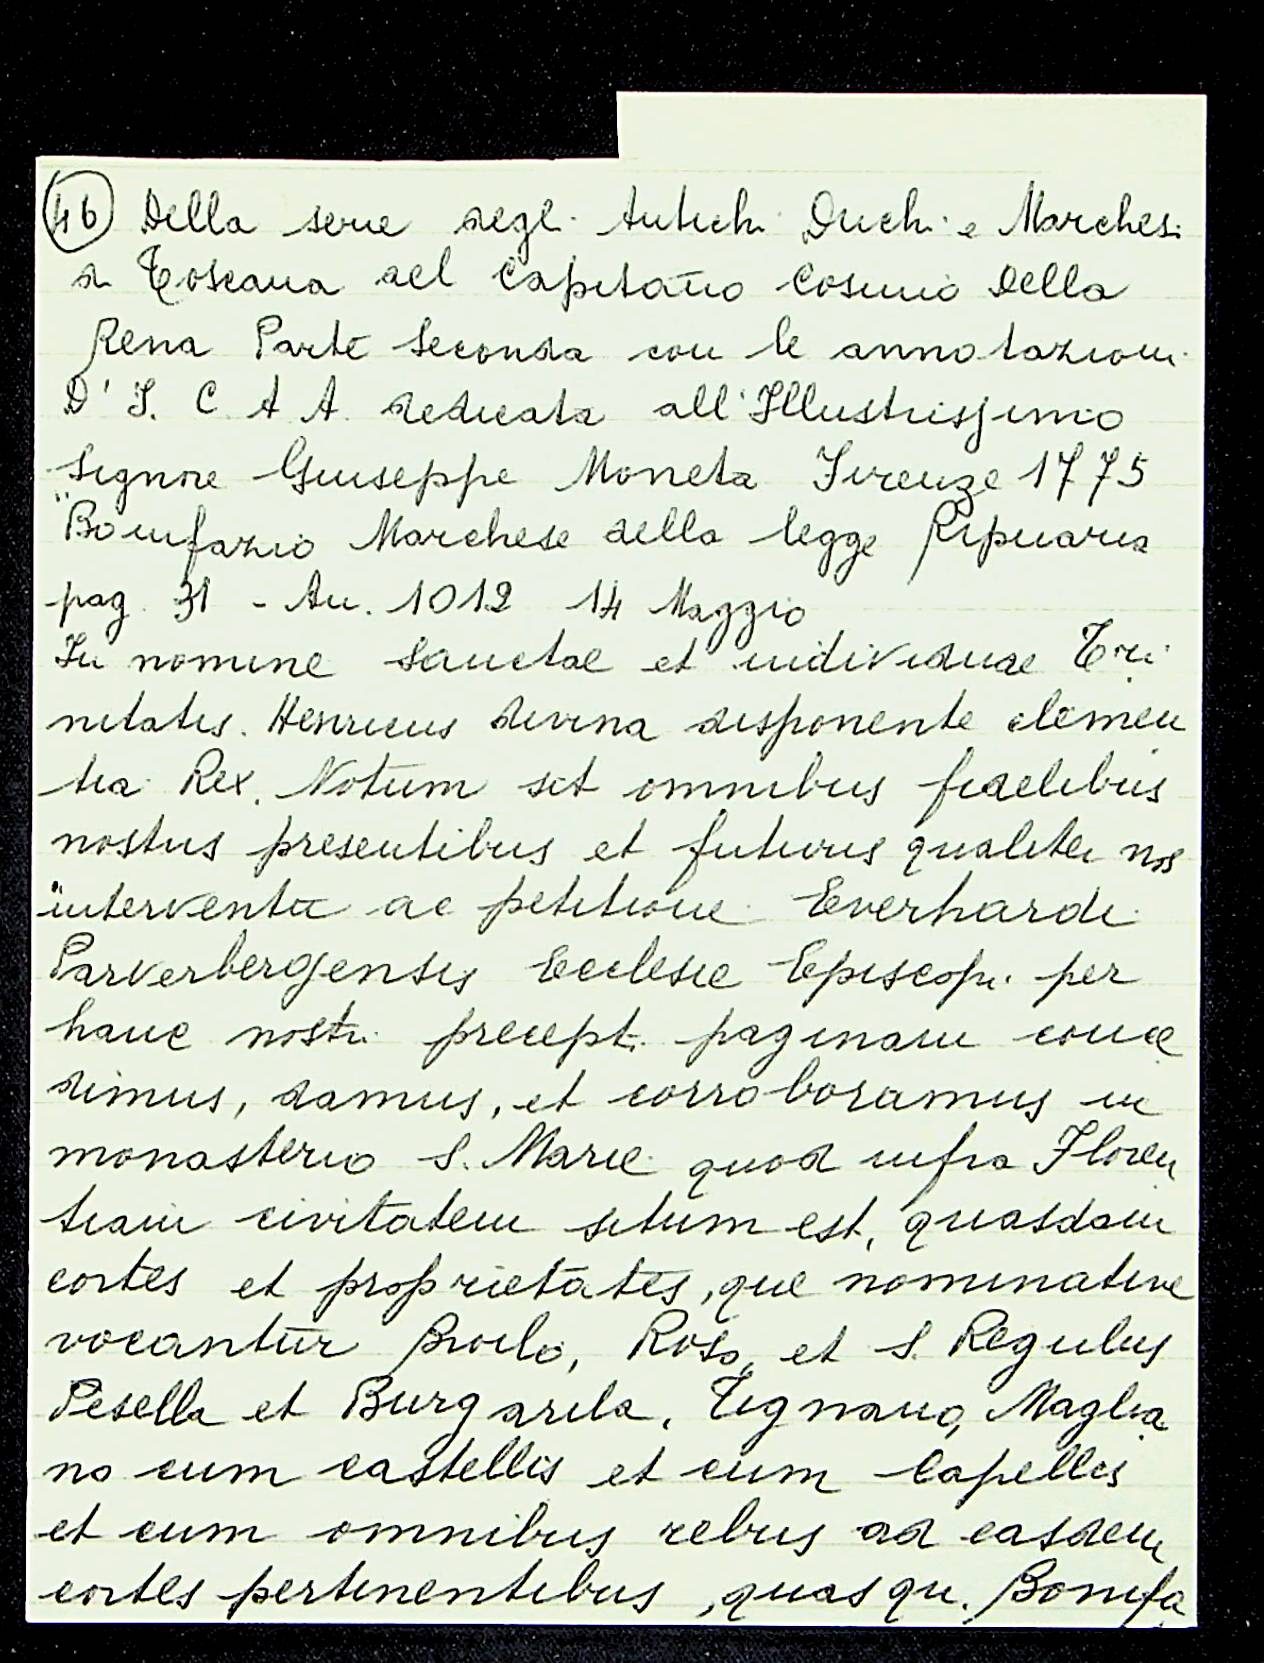 46 Della serie degli Antichi Duchi e Marchesi
di Toscana del Capitano Cosimo Della
Rena Parte Seconda con le annotazioni
D' I. C. A A. dedicata all'Illustrissimo
Signore Giuseppe Moneta Firenze 1775
"Bonifazio Marchese della legge Ripuaria
pag. 31 - An. 1012 14 Maggio
In nomine Sanctae et individuae Tri
nitatis. Henricus divina disponente clemen
tia Rex. Notum sit omnibus fidelibus
nostris presentibus et futuris qualiter nos
interventu ac petitione Everhardi
Parverbergensis Ecclesie Episcopi per
hanc nostri precepti paginam conce
dimus, damus, et corroboramus in
monasterio S. Marie quod infra Floren
tiam civitatem situm est, quasdam
cortes et proprietates, que nominative
vocantur Broilo, Roso, et S. Regulus
Pesella et Burgarila, Tignano, Maglia
no cum castellis et cum Capellis
et cum omnibus rebus ad easdem
cortes pertinentibus, quas qu. Bonifa